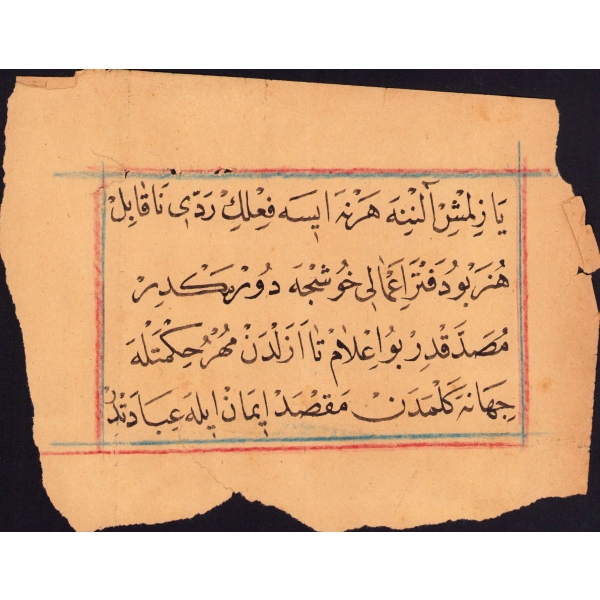 يازلمش آلننه هر نه ايسه فعلك ردّى ناقابل
هنر بو دفتر اعمالى خوشجه دورمكدر
مصدّقدر بو اعلام تا ازلدن مهر حكمتله
جهانه كلمه‌دن مقصد ايمان ايله عبادتدر